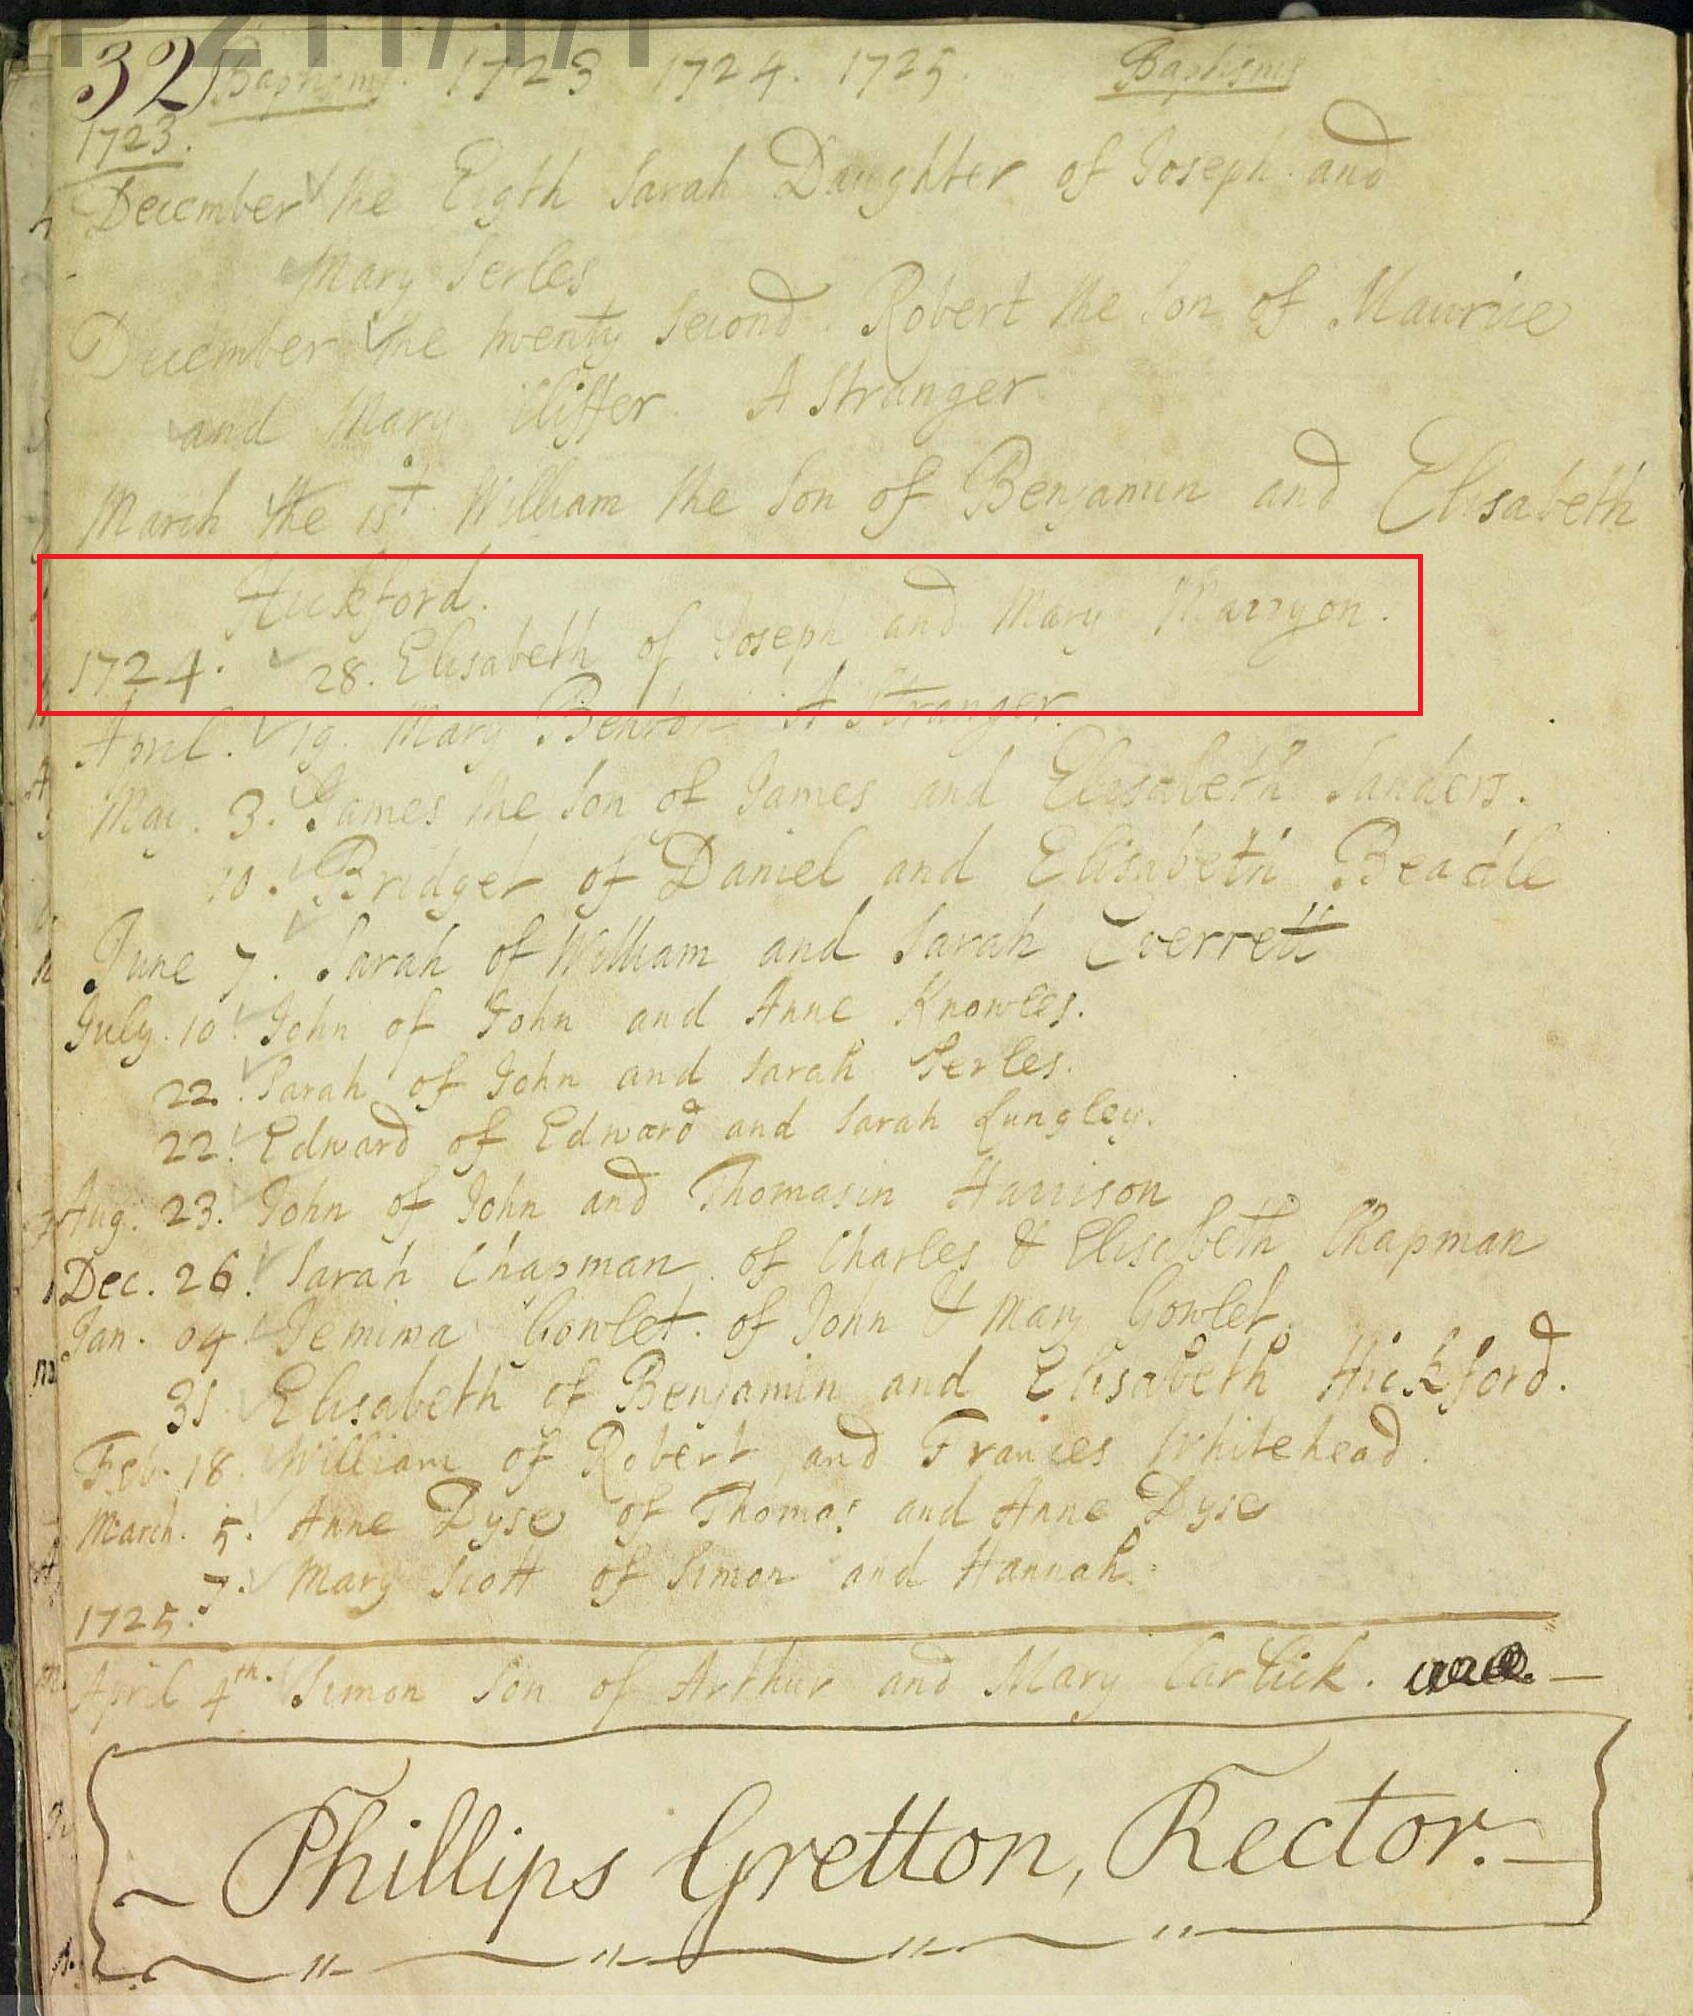 32 Baptisms. 1723 1724. 1725. Baptisms
1723.
December the Eigth Sarah Daughter of Joseph and
Mary Serles
December the twenty Second. Robert the Son of Maurice
and Mary A Stranger
March the 1st. William the Son of Benjamin and Elisabeth
Hickford.
1724. 28. Elisabeth of Joseph and Mary Marryon.
April. 19. Mary Benton A Stranger.
May. 3. James the Son of James and Elisabeth Sanders.
10. Bridget of Daniel and Elisabeth Beadle
June 7. Sarah of William and Sarah Everrett
July. 10. John of John and Anne Knowles.
22. Sarah of John and Sarah Serles.
22. Edward of Edward and Sarah Lungley.
Aug. 23. John of John and Thomasin Harrison
Dec. 26. Sarah Chapman of Charles & Elisabeth Chapman
Jan. 04. Jemima Gowlet. of John & Mary Gowlet.
31 Elisabeth of Benjamin and Elisabeth Hickford.
Feb. 18. William of Robert and Frances Whitehead.
March. 5. Anne Dyse of Thomas and Anne Dyse
7. Mary Scott of Simon and Hannah.
1725.
April 4th. Simon Son of Arthur and Mary Carlick.
Phillips Gretton, Rector.